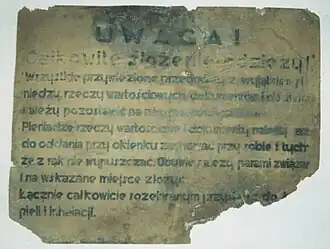 UWAGA!
Całkowite złożenie odzieży!
Wszystkie przywiezione przedmioty z wyjątkiem pi
niędzy, rzeczy wartościowych, dokumentów i
należy pozostawić na
Pieniądze, rzeczy wartościowe i dokumenty należy aż
do oddania przy okienku zatrzymać przy sobie i tych-
że z rąk nie wypuszczać. Obuwie należy parami związać
i na wskazane miejsce złożyć.
Łącznie całkowicie rozebranym do
pieli i inhalacji.